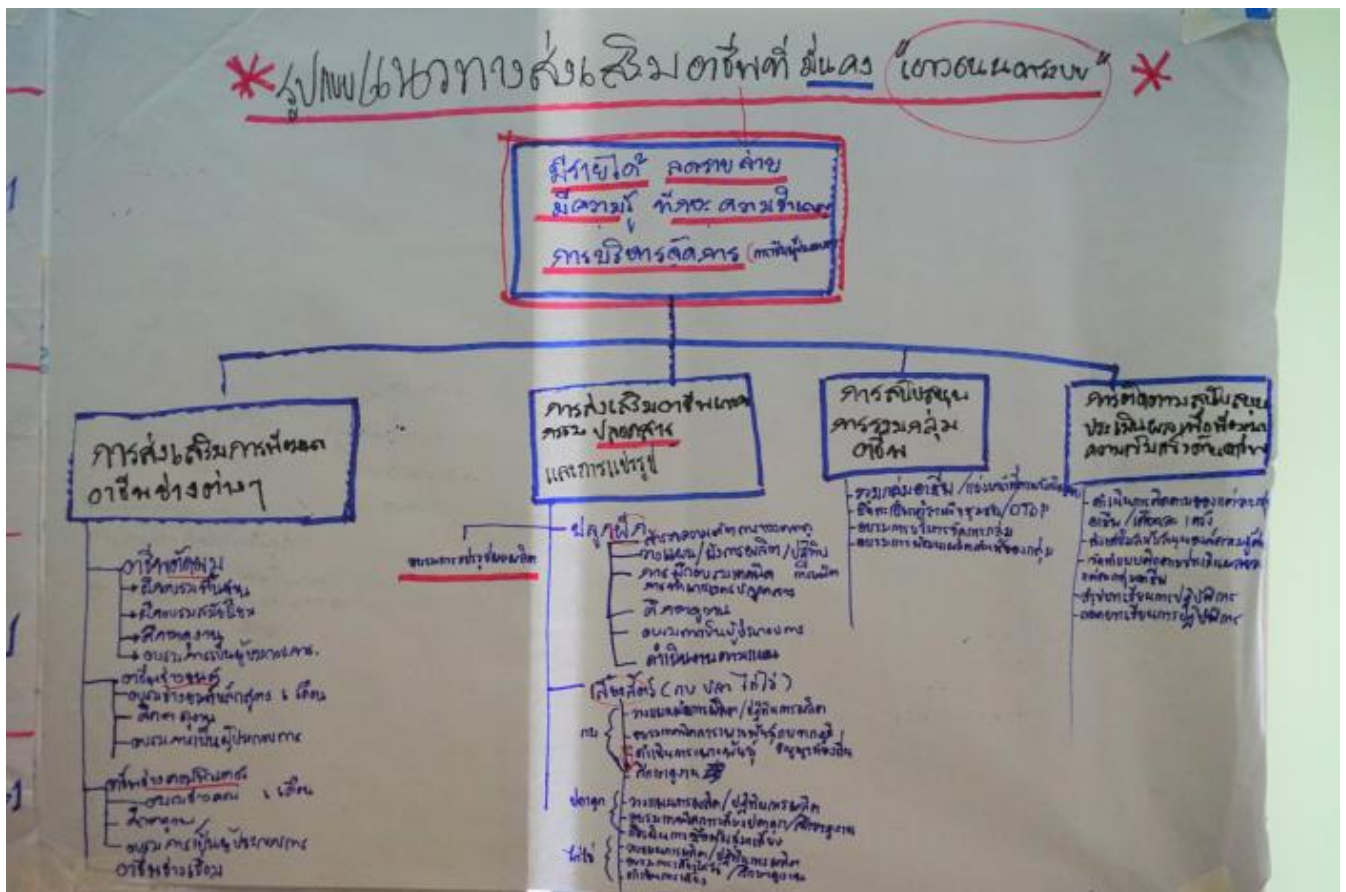 รูปแบบ/แนวทางส่งเสริมอาชีพที่ มั่นคง "เยาวชนนอกระบบ"
มีรายได้ ลดรายจ่าย
มีความรู้ ทักษะ ความชำนาญ
การบริหารจัดการ
การส่งเสริมการพัฒนา
อาชีพช่างต่างๆ
อาชีพตัดผม
ฝึกอบรมพื้นฐาน
ฝึกอบรมสมัยนิยม
ศึกษาดูงาน
อบรมการเป็นผู้ประกอบการ
อาชีพช่างยนต์
อบรมช่างยนต์หลักสูตร เดือน
ศึกษาดูงาน
อบรมการเป็นผู้ประกอบการ
อาชีพช่างคอมพิวเตอร์
อบรมช่างคอม เดือน
ศึกษาดูงาน
อบรมการเป็นผู้ประกอบการ
อาชีพช่างเชื่อม
การส่งเสริมอาชีพเกษตร
กรรม ปลอดสาร
และการแปรรูป
อบรมการแปรรูปผลผลิต
ปลูกผัก
วางแผน/ผังการผลิต/ปฏิทิน
การฝึกอบรมเทคนิค การผลิต
ศึกษาดูงาน
อบรมการเป็นผู้ประกอบการ
ดำเนินงานตามแผน
เลี้ยงสัตว์ (กบ ปลา ไก่ไข่)
กบ
วางแผนการผลิต/ปฏิทินการผลิต
อบรมเทคนิคการเพาะพันธุ์กบ
ดำเนินการเพาะพันธุ์
ศึกษาดูงาน
ปลาดุก
วางแผนการผลิต/ปฏิทินการผลิต
อบรมเทคนิคการเลี้ยงปลาดุก/ศึกษาดูงาน
ไก่ไข่
วางแผนการผลิต/ปฏิทินการผลิต
อบรมการเลี้ยงไก่ไข่/ศึกษาดูงาน
ดำเนินการเลี้ยง
การสนับสนุน
การรวมกลุ่ม
อาชีพ
รวมกลุ่มอาชีพ
OTOP
อบรมการบริหารจัดการกลุ่ม
อบรมการพัฒนาผลิตภัณฑ์ของกลุ่ม
การติดตามสนับสนุน
ประเมินผลเพื่อพัฒนา
ดำเนินการติดตามของแต่ละกลุ่ม
อาชีพ/เดือนละ 1 ครั้ง
สรุปบทเรียนการปฏิบัติการ
ถอดบทเรียนการปฏิบัติการ